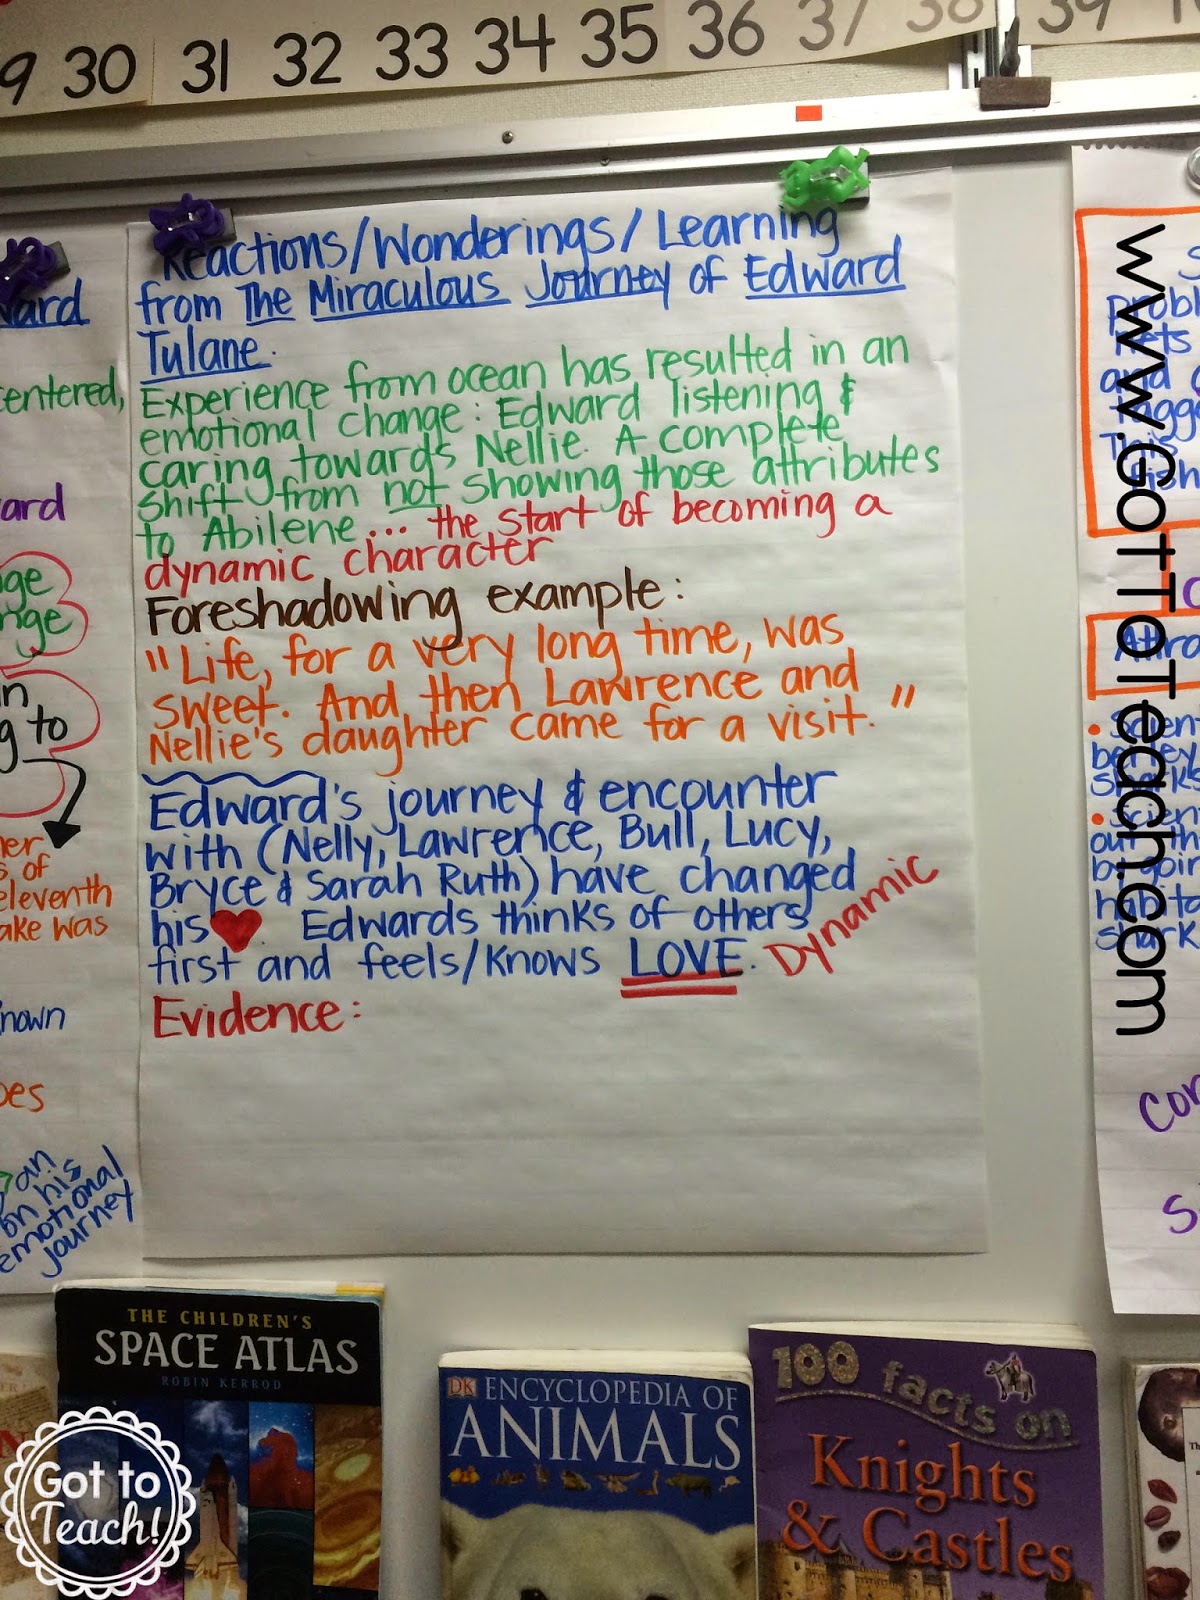 30 31 32 33 34 35 36 37 38 39
Reactions/Wonderings/Learning
from The Miraculous Journey of Edward
Tulane.
Experience from ocean has resulted in an
emotional change: Edward listening &
caring towards Nellie. A complete
shift from not showing those attributes
to Abilene... the start of becoming a
dynamic character
Foreshadowing example:
"Life, for a very long time, was
sweet. And then Lawrence and
Nellie's daughter came for a visit."
Edward's journey & encounter
with (Nelly, Lawrence, Bull, Lucy,
Bryce & Sarah Ruth) have changed
his ❤. Edwards thinks of others
first and feels/knows LOVE. Dynamic
Evidence:
centered,
g to
of
eleventh
was
an
on his
emotional
journey
www.GotToTeach.com
and
This
THE CHILDREN'S
SPACE ATLAS
ROBIN KERROD
DK ENCYCLOPEDIA OF
ANIMALS
100 facts on
Knights
& Castles
Got to
Teach!